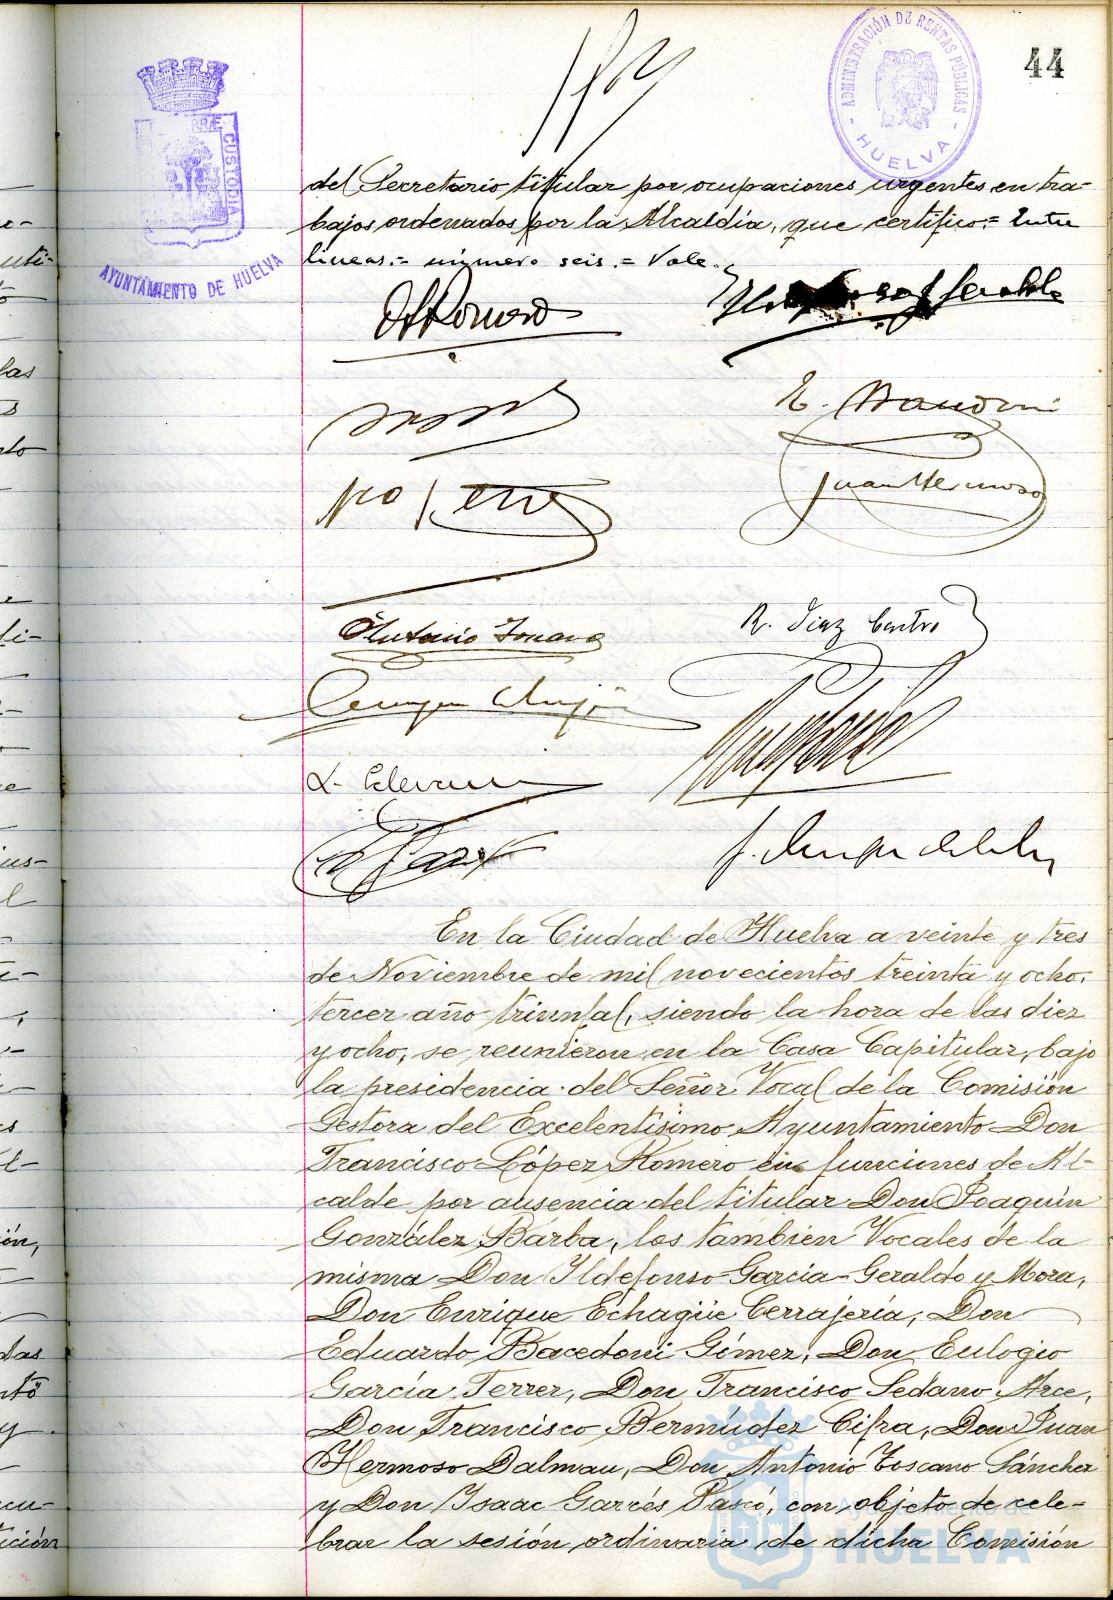 44
ADMINISTRACIÓN DE RENTAS PÚBLICAS
- HUELVA -
CUSTODIA
AYUNTAMIENTO DE HUELVA
del Secretario titular por ocupaciones urgentes en tra-
bajos ordenados por la Alcaldía, que certifico:= Entre
líneas.= número seis.= Vale.
E.
Juan Hermoso
Antonio
R. Diaz Castro
En la Ciudad de Huelva a veinte y tres
de Noviembre de mil novecientos treinta y ocho,
tercer año triunfal, siendo la hora de las diez
y ocho, se reunieron en la Casa Capitular, bajo
la presidencia del Señor Vocal de la Comisión
Gestora del Excelentísimo Ayuntamiento Don
Francisco López Romero en funciones de Al-
calde por ausencia del titular Don Joaquín
González Barba, los también Vocales de la
misma Don Ildefonso García-Geraldo y Mora,
Don Enrique Echagüe Cerrajería, Don
Eduardo Bacedoni Gómez, Don Eulogio
García Ferrer, Don Francisco Sedano Arce,
Don Francisco Bermúdez Cifra, Don Juan
Hermoso Dalmau, Don Antonio Toscano Sánchez
y Don Isaac Garcés Pascó, con objeto de cele-
brar la sesión ordinaria de dicha Comisión
Ayuntamiento de
HUELVA